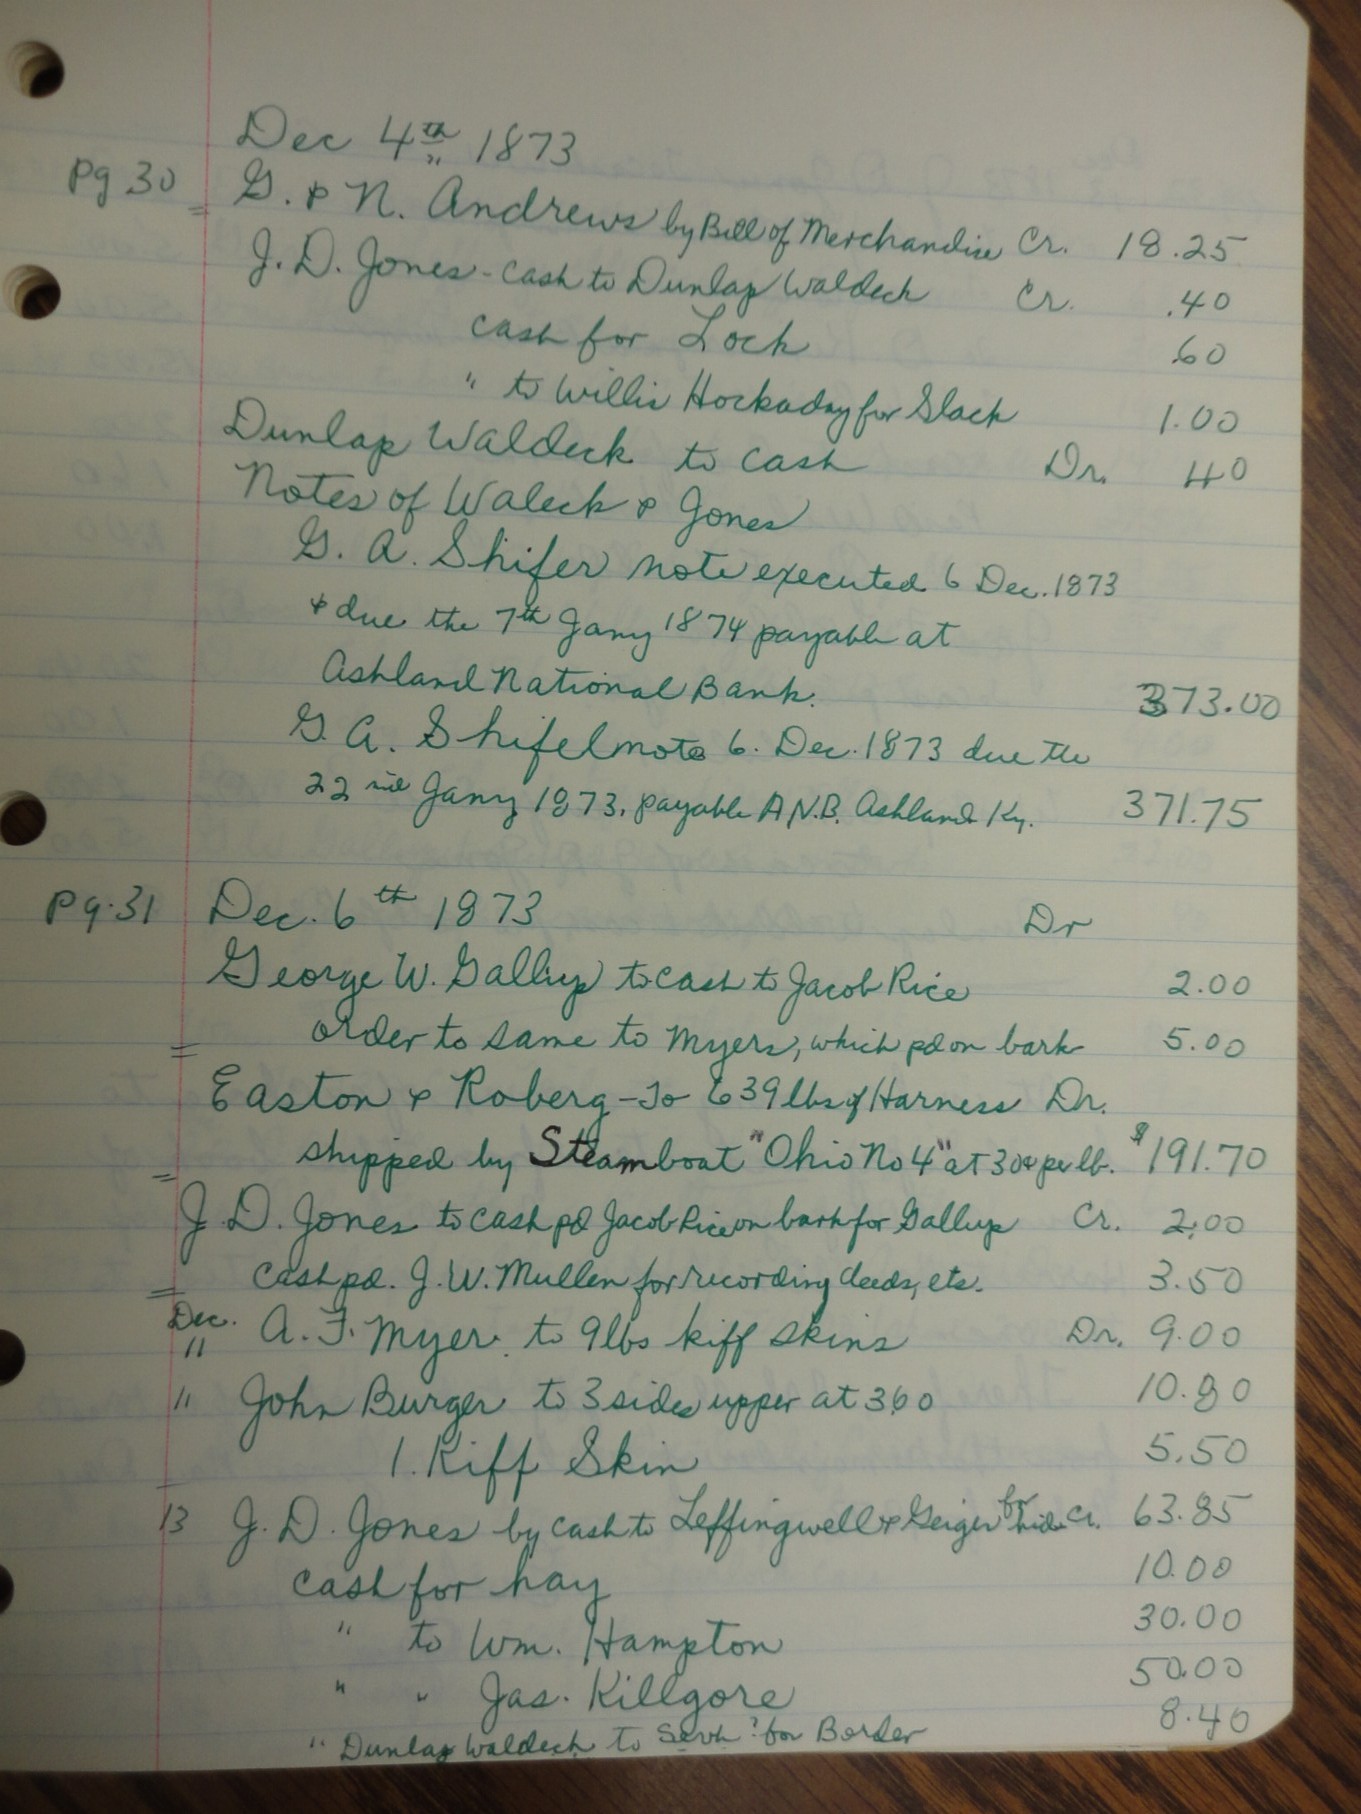 Dec 4th 1873
pg 30 G. & N. Andrews by Bill of Merchandise Cr. 18.25
J. D. Jones - cash to Dunlap Waldeck Cr. .40
cash for Lock .60
" to Willis Hockaday for Slack 1.00
Dunlap Waldeck to cash Dr. 40
Notes of Waleck & Jones
G. A. Shifer note executed 6 Dec. 1873
& due the 7th Jany 1874 payable at
Ashland National Bank. 373.00
G. A. Shifel note 6. Dec. 1873 due the
22nd Jany 1873, payable A.N.B. Ashland Ky. 371.75
pg. 31 Dec. 6th 1873 Dr
George W. Gallup to cash to Jacob Rice 2.00
order to same to Myers, which pd on bark 5.00
Easton & Roberg - To 639 lbs of Harness Dr.
shipped by Steamboat "Ohio No 4" at 30¢ per lb. $191.70
J. D. Jones to cash pd Jacob Rice on bark for Gallup Cr. 2.00
Cash pd. J. W. Mullen for recording deeds, etc. 3.50
Dec. " A. F. Myer. to 9 lbs kiff skins Dr. 9.00
" John Burger to 3 sides upper at 360 10.80
1. Kiff Skin 5.50
13 J. D. Jones by cash to Leffingwell & Geiger for hide Cr. 63.85
cash for hay 10.00
" to Wm. Hampton 30.00
" " Jas. Killgore 50.00
" Dunlap Waldeck to ? for Border 8.40